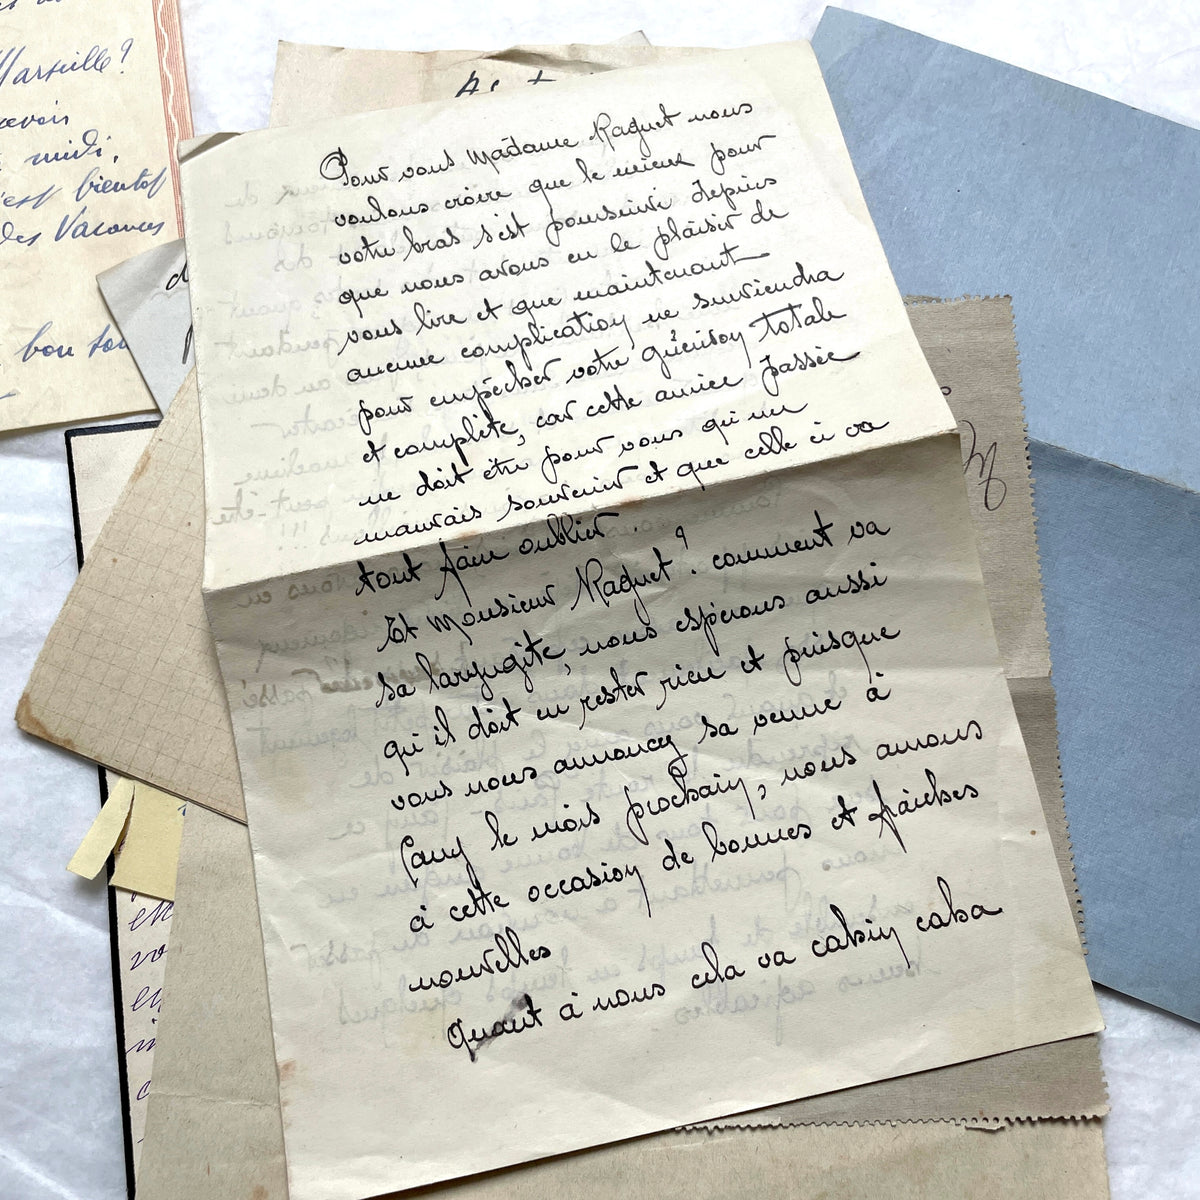 Marseille ?
midi,
c'est bientôt
des Vacances
bon
Pour vous Madame Raguet nous
voulons croire que le mieux pour
votre bras s'est poursuivi depuis
que nous avons eu le plaisir de
vous lire et que maintenant
aucune complication ne surviendra
pour empêcher votre guérison totale
et complète, car cette année passée
ne doit être pour vous qu'un
mauvais souvenir et que celle ci va
tout faire oublier.
Et Monsieur Raguet ? comment va
sa laryngite, nous espérons aussi
qu'il doit en rester rien et puisque
vous nous annoncez sa venue à
le mois prochain, nous aurons
à cette occasion de bonnes et fraiches
nouvelles
Quant à nous cela va cahin caha